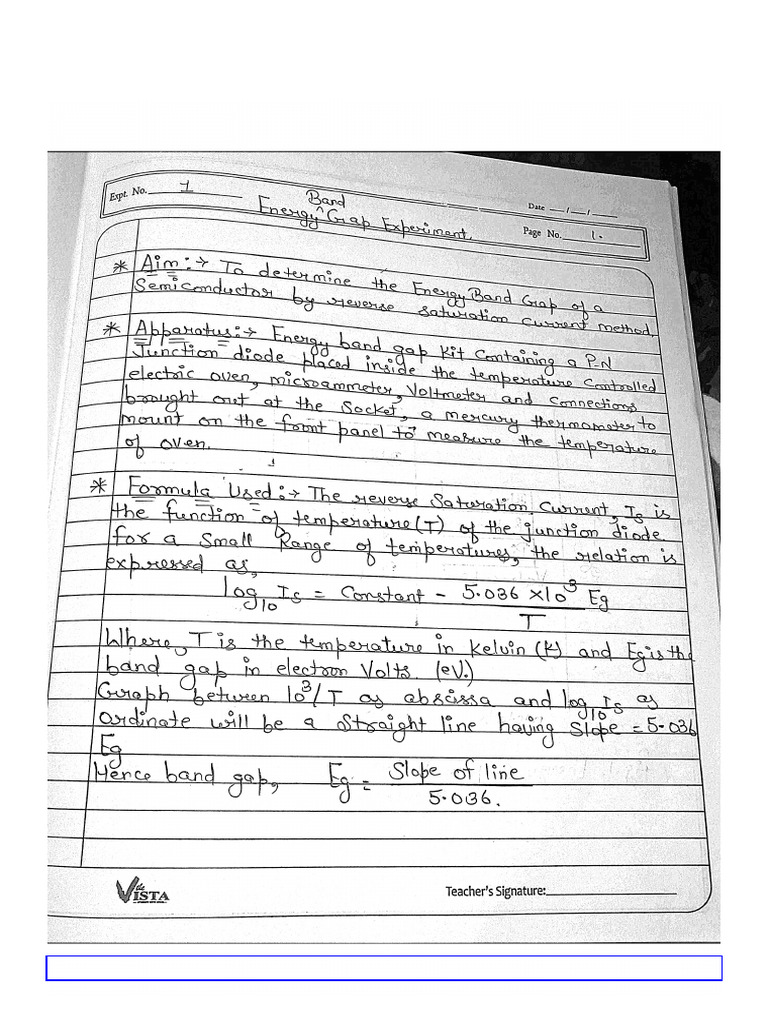 Expt. No. 1
Date __/__/__
Band
Energy ^ Gap Experiment.
Page No. 1.
* Aim:→ To determine the Energy Band Gap of a
Semiconductor by reverse saturation current method.
* Apparatus:→ Energy band gap Kit Containing a P-N
Junction diode placed inside the temperature Controlled
electric oven, microammeter, Voltmeter and Connections
brought out at the Socket, a mercury thermometer to
mount on the front panel to measure the temperature
of oven.
* Formula Used:→ The reverse Saturation Current, Is is
the function of temperature (T) of the junction diode
for a Small Range of temperatures, the relation is
expressed as,
log₁₀ Is = Constant - 5.036 ×10³ Eg / T
Where, T is the temperature in Kelvin (K) and Eg is the
band gap in electron Volts. (eV.)
Graph between 10³/T as abscissa and log₁₀ Is as
ordinate will be a Straight line having Slope = 5.036
Eg
Hence band gap, Eg = Slope of line / 5.036.
the VISTA
Teacher's Signature: